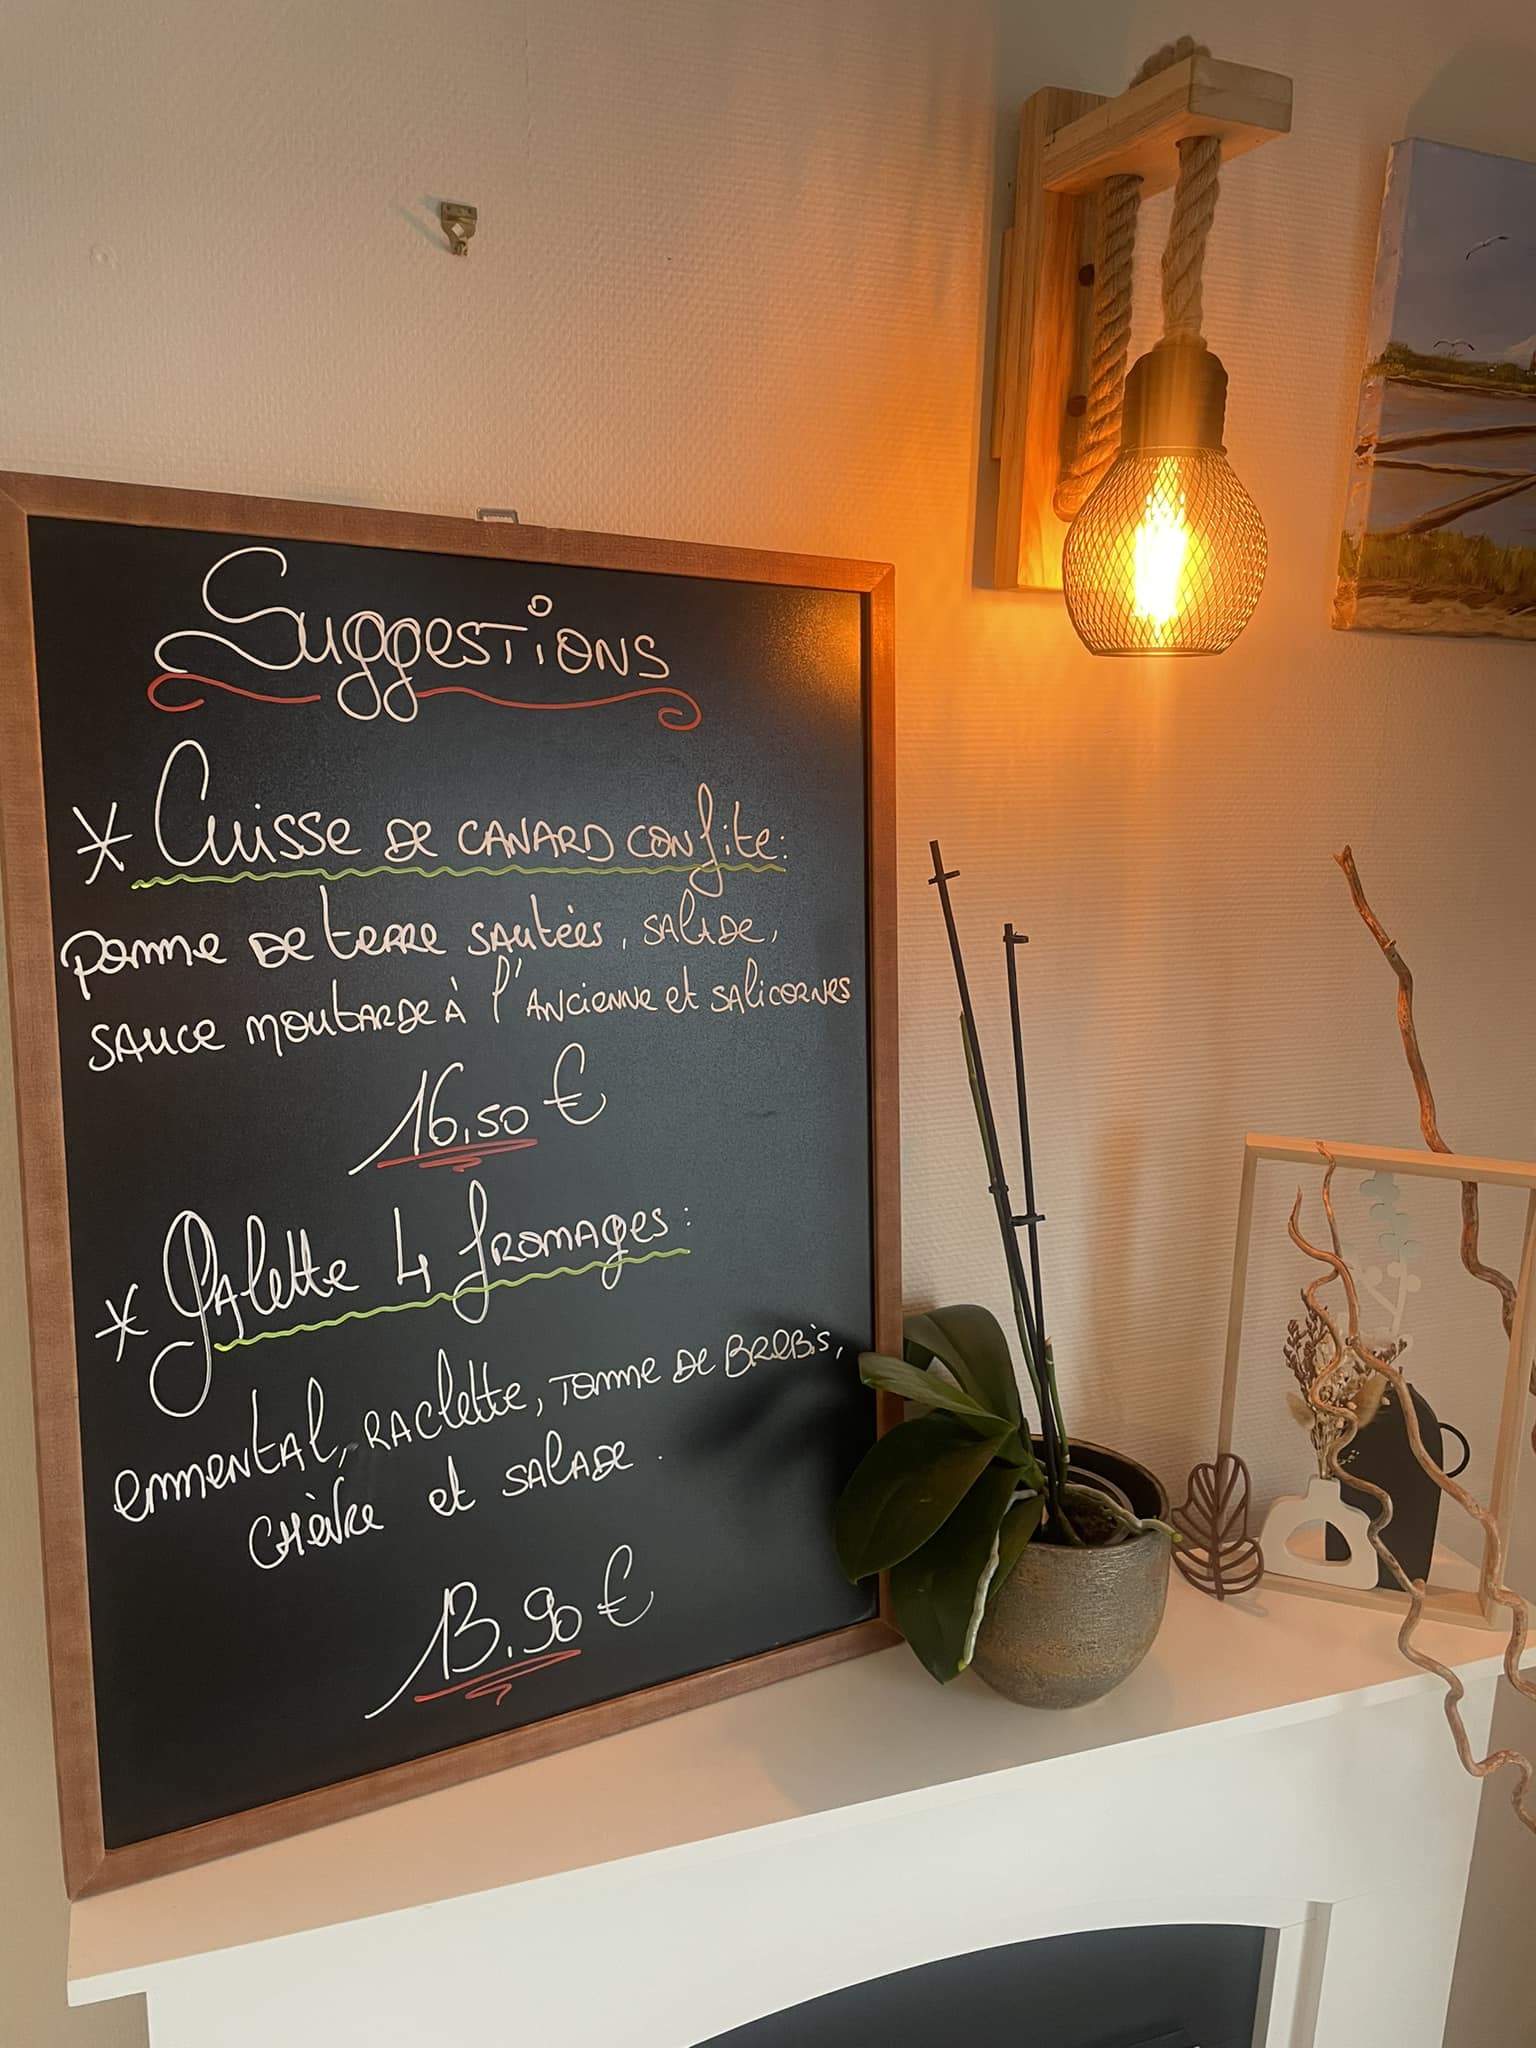 Suggestions
* Cuisse de canard confite:
pomme de terre sautées, salade,
sauce moutarde à l'ancienne et salicornes
16,50 €
* Galette 4 fromages:
emmental, raclette, tomme de brebis,
chèvre et salade.
13,90 €